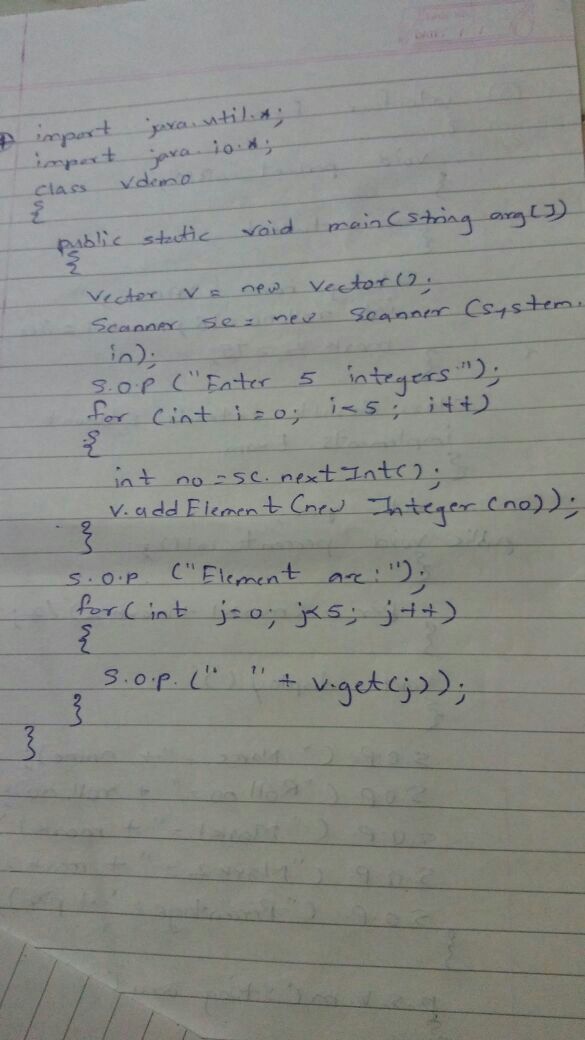 import java.util.*;
import java.io.*;
class vdemo
{
public static void main(string arg[])
{
Vector v = new Vector();
Scanner sc = new Scanner (system.
in);
S.O.P ("Enter 5 integers");
for (int i = 0; i<5; i++)
{
int no = sc.nextInt();
v.addElement (new Integer (no));
}
S.O.P ("Element are:");
for( int j=0; j<5; j++)
{
S.O.P. (" " + v.get(j));
}
}